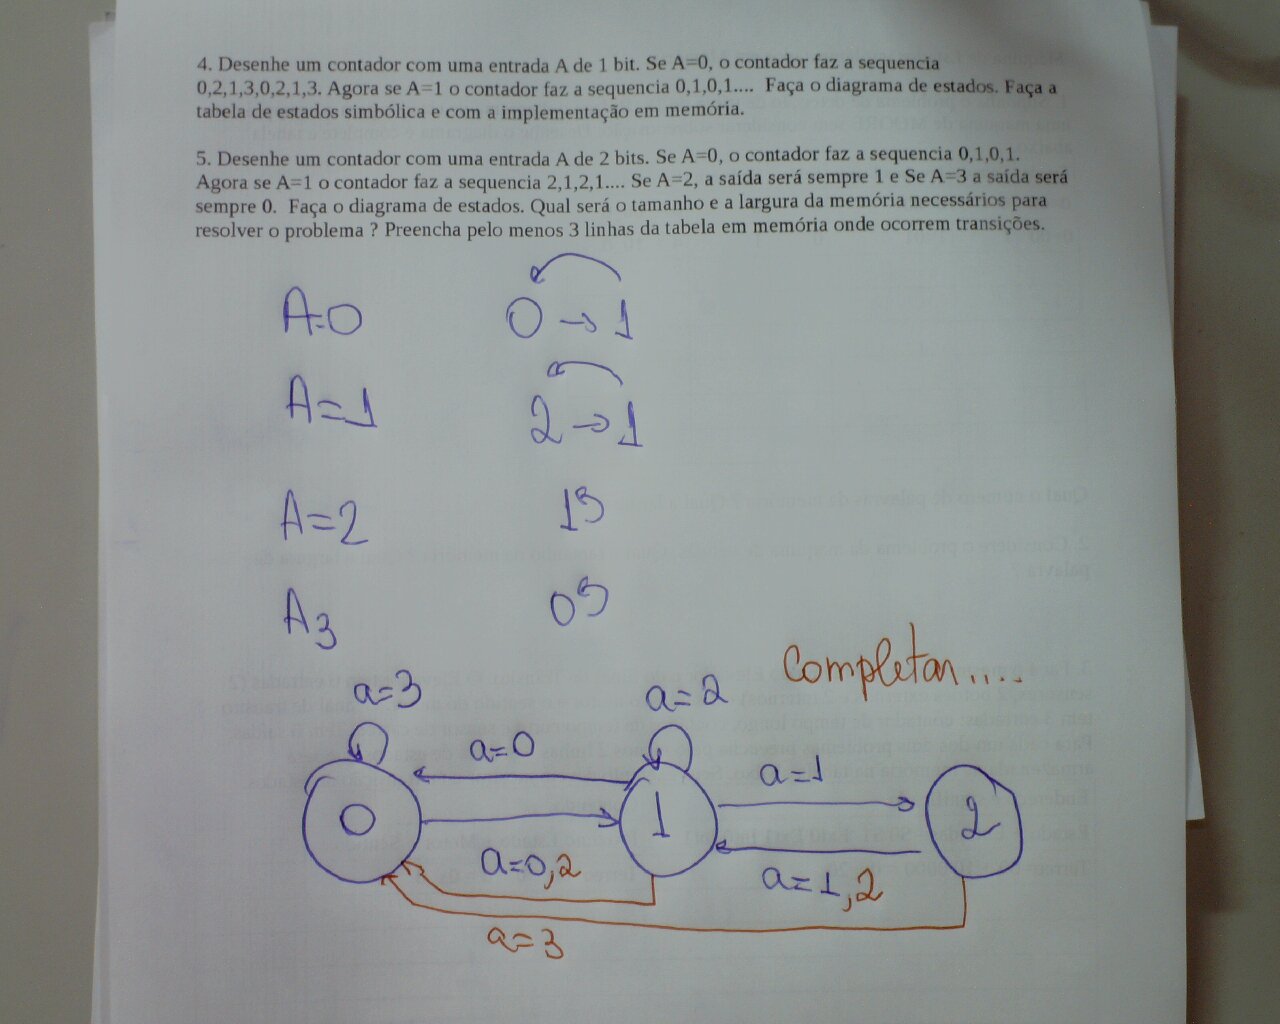 4. Desenhe um contador com uma entrada A de 1 bit. Se A=0, o contador faz a sequencia
0,2,1,3,0,2,1,3. Agora se A=1 o contador faz a sequencia 0,1,0,1.... Faça o diagrama de estados. Faça a
tabela de estados simbólica e com a implementação em memória.
5. Desenhe um contador com uma entrada A de 2 bits. Se A=0, o contador faz a sequencia 0,1,0,1.
Agora se A=1 o contador faz a sequencia 2,1,2,1.... Se A=2, a saída será sempre 1 e Se A=3 a saída será
sempre 0. Faça o diagrama de estados. Qual será o tamanho e a largura da memória necessários para
resolver o problema ? Preencha pelo menos 3 linhas da tabela em memória onde ocorrem transições.
A=0 0 → 1
A=1 2 → 1
A=2 1
A3 0
Completar....
a=3 a=2
a=0 a=1
0 1 2
a=0,2 a=1,2
a=3